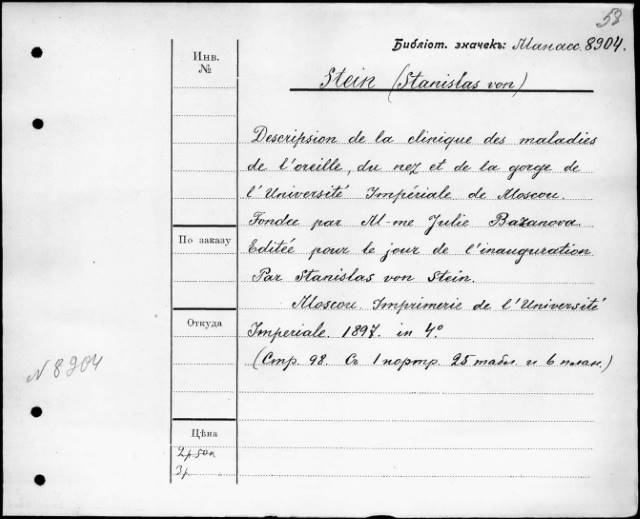 58
Библіот. значекъ: Манасс. 8904.
Инв.
№
Stein (Stanislas von)
Descripsion de la clinique des maladies
de l'oreille, du nez et de la gorge de
l'Université Impériale de Moscou.
Fondée par M-me Julie Bazanova.
Editée pour le jour de l'inauguration
Par Stanislas von Stein.
Moscou. Imprimerie de l'Université
Imperiale. 1897. in 4º.
(Стр. 98. Съ 1 портр. 25 табл. и 6 план.)
По заказу
Откуда
N 8904
Цѣна
2р 50к
3р